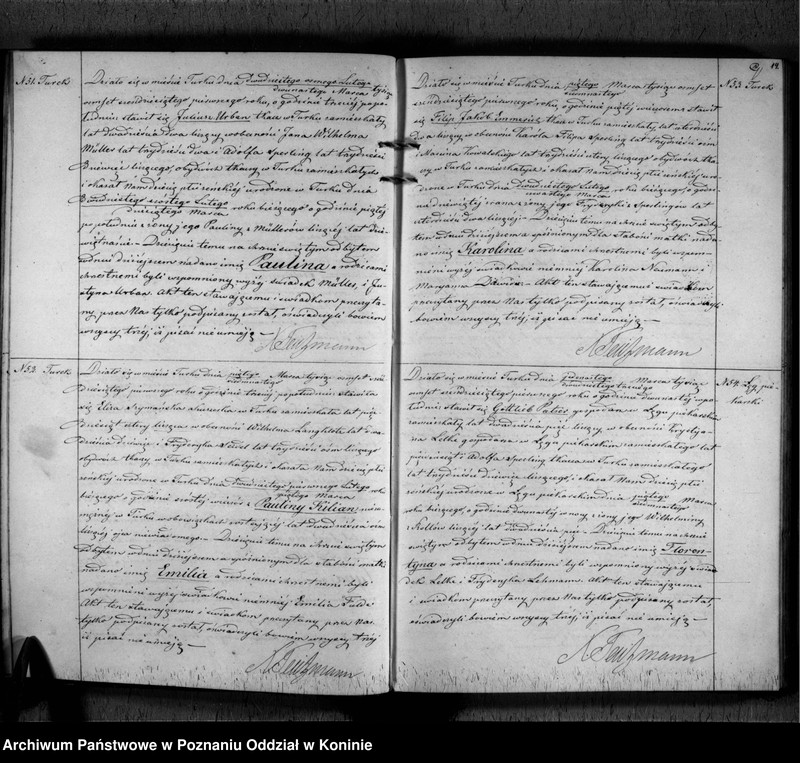 N 51. Turek
Działo się w mieście Turku dnia dwudziestego ósmego Lutego
dwunastego Marca tysiąc
ośmset sześćdziesiątego pierwszego roku, o godzinie trzeciej popo-
łudniu stawił się Juliusz Urban tkacz w Turku zamieszkały
lat dwadzieścia dwa liczący w obecności Jana Wilhelma
Müller lat trzydzieści dwa i Adolfa Sperling lat trzydzieści
dziewięć liczącego, obydwóch tkaczy w Turku zamieszkałych
i okazał Nam dziecię płci żeńskiej urodzone w Turku dnia
dwudziestego szóstego Lutego
dziesiątego Marca roku bieżącego o godzinie piątej
po południu z żony jego Pauliny z Müllerów liczącej lat dzie-
więtnaście – Dziecięciu temu na chrzcie świętym odbytem
w dniu dzisiejszem nadano imię Paulina a rodzicami
chrzestnemi byli wspomniony wyżej świadek Müller, i Ju-
styna Urban. Akt ten stawającemu i świadkom przeczyta-
ny przez Nas tylko podpisany został, oświadczyli bowiem
wszyscy trzej, iż pisać nie umieją –
N 52. Turek
Działo się w mieście Turku dnia piątego
siedmnastego Marca tysiąc ośmset sześć-
dziesiątego pierwszego roku o godzinie trzeciej popołudniu, stawiła
się Eliza Szymańska akuszerka w Turku zamieszkała lat pięć-
dziesiąt cztery licząca w obecności Wilhelma
i Fryderyka lat trzydzieści ośm liczącego
obydwóch tkaczy, w Turku zamieszkałych i okazała Nam dziecię płci
żeńskiej urodzone w Turku dnia dwudziestego pierwszego Lutego
piątego Marca roku
bieżącego o godzinie szóstej wieczór z Pauliny Kilian nieza-
mężnej w Turku w obowiązkach zostającej lat dwadzieścia
liczącej ojca niewiadomego – Dziecięciu temu na chrzcie świętym
odbytem w dniu dzisiejszem a spóźnionym dla słabości matki
nadano imię Emilia a rodzicami chrzestnemi byli
wspomnieni wyżej świadkowie niemniej Emilia
Akt ten stawającej i świadkom przeczytany przez Nas
tylko podpisany został, oświadczyli bowiem wszyscy trzej
iż pisać nie umieją –
12
N 53. Turek
Działo się w mieście Turku dnia piątego
siedmnastego Marca tysiąc ośmset
sześćdziesiątego pierwszego roku, o godzinie piątej wieczorem stawił
się Filip Jakób tkacz w Turku zamieszkały, lat czterdzieści
dwa liczący, w obecności Karola Filipa Sperling lat trzydzieści ośm
i Marcina Kowalskiego lat trzydzieści cztery, liczącego obydwóch tka-
czy w Turku zamieszkałych i okazał Nam dziecię płci żeńskiej uro-
dzone w Turku dnia dwudziestego Lutego
czwartego Marca roku bieżącego, o godzi-
nie dziewiątej z rana z żony jego Fryderyki z Sperlingów lat
czterdzieści dwa liczącej – Dziecięciu temu na chrzcie świętym odby-
tem w dniu dzisiejszem a spóźnionym dla słabości matki nada-
no imię Karolina a rodzicami chrzestnemi byli wspom-
nieni wyżej świadkowie niemniej Karolina Naimann i
Maryanna Akt ten stawającemu i świadkom
przeczytany przez Nas tylko podpisany został, oświadczyli
bowiem wszyscy trzej, iż pisać nie umieją –
N 54.
Działo się w mieście Turku dnia
Marca tysiąc
ośmset sześćdziesiątego pierwszego roku o godzinie dwunastej w po-
łudnie stawił się Gottlieb gospodarz w
zamieszkały lat dwadzieścia pięć liczący w obecności Krysty-
jana Letki gospodarza w zamieszkałego lat
pięćdziesiąt i Adolfa Sperling tkacza w Turku zamieszkałego
lat trzydzieści dziewięć liczącego, i okazał Nam dziecię płci
żeńskiej urodzone w dnia piątego
siedmnastego Marca
roku bieżącego, o godzinie dwunastej w nocy z żony jego Wilhelminy
lat dwadzieścia pięć – Dziecięciu temu na chrzcie
świętym odbytem w dniu dzisiejszem nadano imię Floren-
tyna a rodzicami chrzestnemi byli wspomniony wyżej świa-
dek Letki i Fryderyka Lehmann. Akt ten stawającemu
i świadkom przeczytany przez Nas tylko podpisany został,
oświadczyli bowiem wszyscy trzej, iż pisać nie umieją –
Archiwum Państwowe w Poznaniu Oddział w Koninie